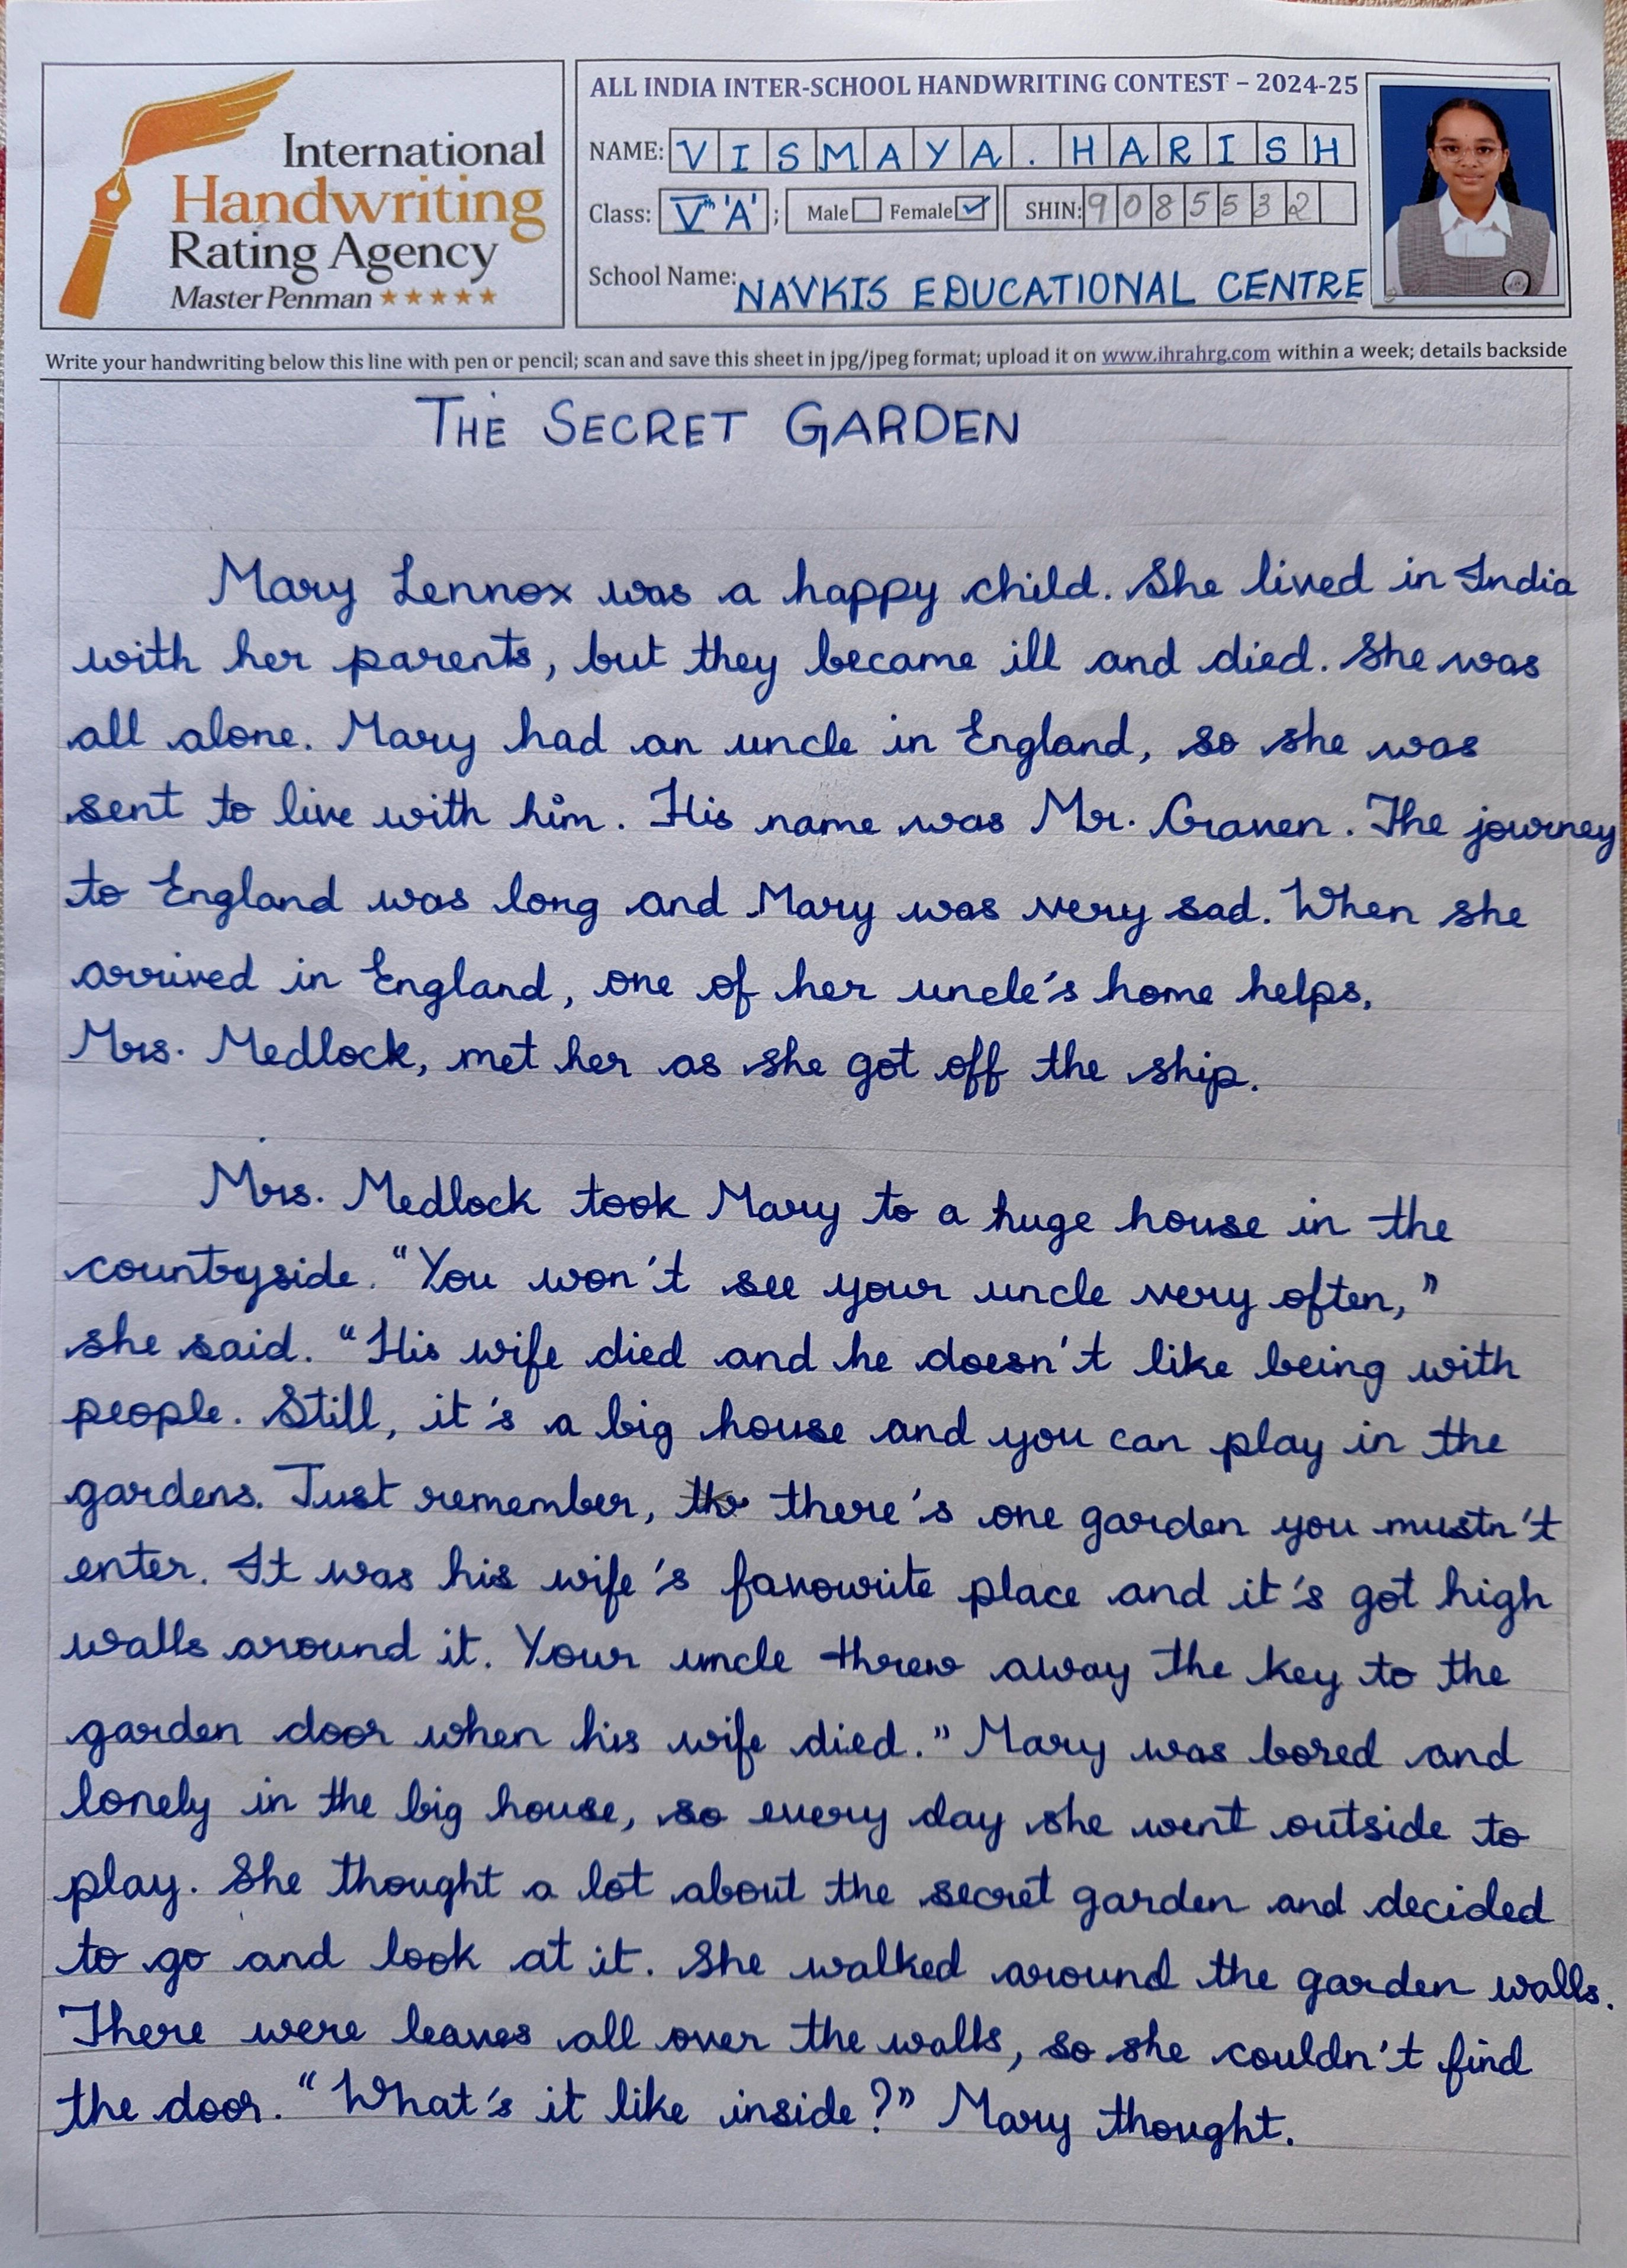 International
Handwriting
Rating Agency
Master Penman ★★★★★
ALL INDIA INTER-SCHOOL HANDWRITING CONTEST – 2024-25
NAME: VISMAYA. HARISH
Class: Vth 'A'; Male Female ✓ SHIN: 9085532
School Name: NAVKIS EDUCATIONAL CENTRE
Write your handwriting below this line with pen or pencil; scan and save this sheet in jpg/jpeg format; upload it on www.ihrahrg.com within a week; details backside
THE SECRET GARDEN
Mary Lennox was a happy child. She lived in India
with her parents, but they became ill and died. She was
all alone. Mary had an uncle in England, so she was
sent to live with him. His name was Mr. Craven. The journey
to England was long and Mary was very sad. When she
arrived in England, one of her uncle's home helps,
Mrs. Medlock, met her as she got off the ship.
Mrs. Medlock took Mary to a huge house in the
countryside. "You won't see your uncle very often,"
she said. "His wife died and he doesn't like being with
people. Still, it's a big house and you can play in the
gardens. Just remember, there's one garden you mustn't
enter. It was his wife's favourite place and it's got high
walls around it. Your uncle threw away the key to the
garden door when his wife died." Mary was bored and
lonely in the big house, so every day she went outside to
play. She thought a lot about the secret garden and decided
to go and look at it. She walked around the garden walls.
There were leaves all over the walls, so she couldn't find
the door. "What's it like inside?" Mary thought.